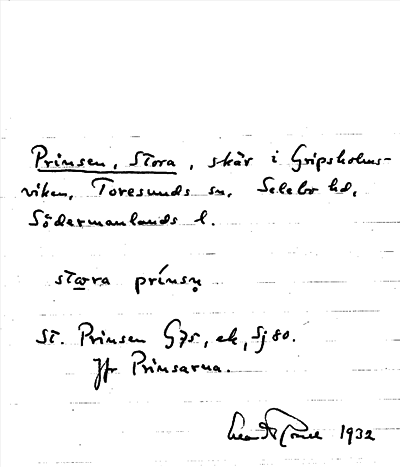 Prinsen, Stora, skär i Gripsholms-
viken, Toresunds sn, Selebo hd,
Södermanlands l.
stora prínsn̥
St. Prinsen G75, ek, Sj 80.
Jfr Prinsarna.
1932